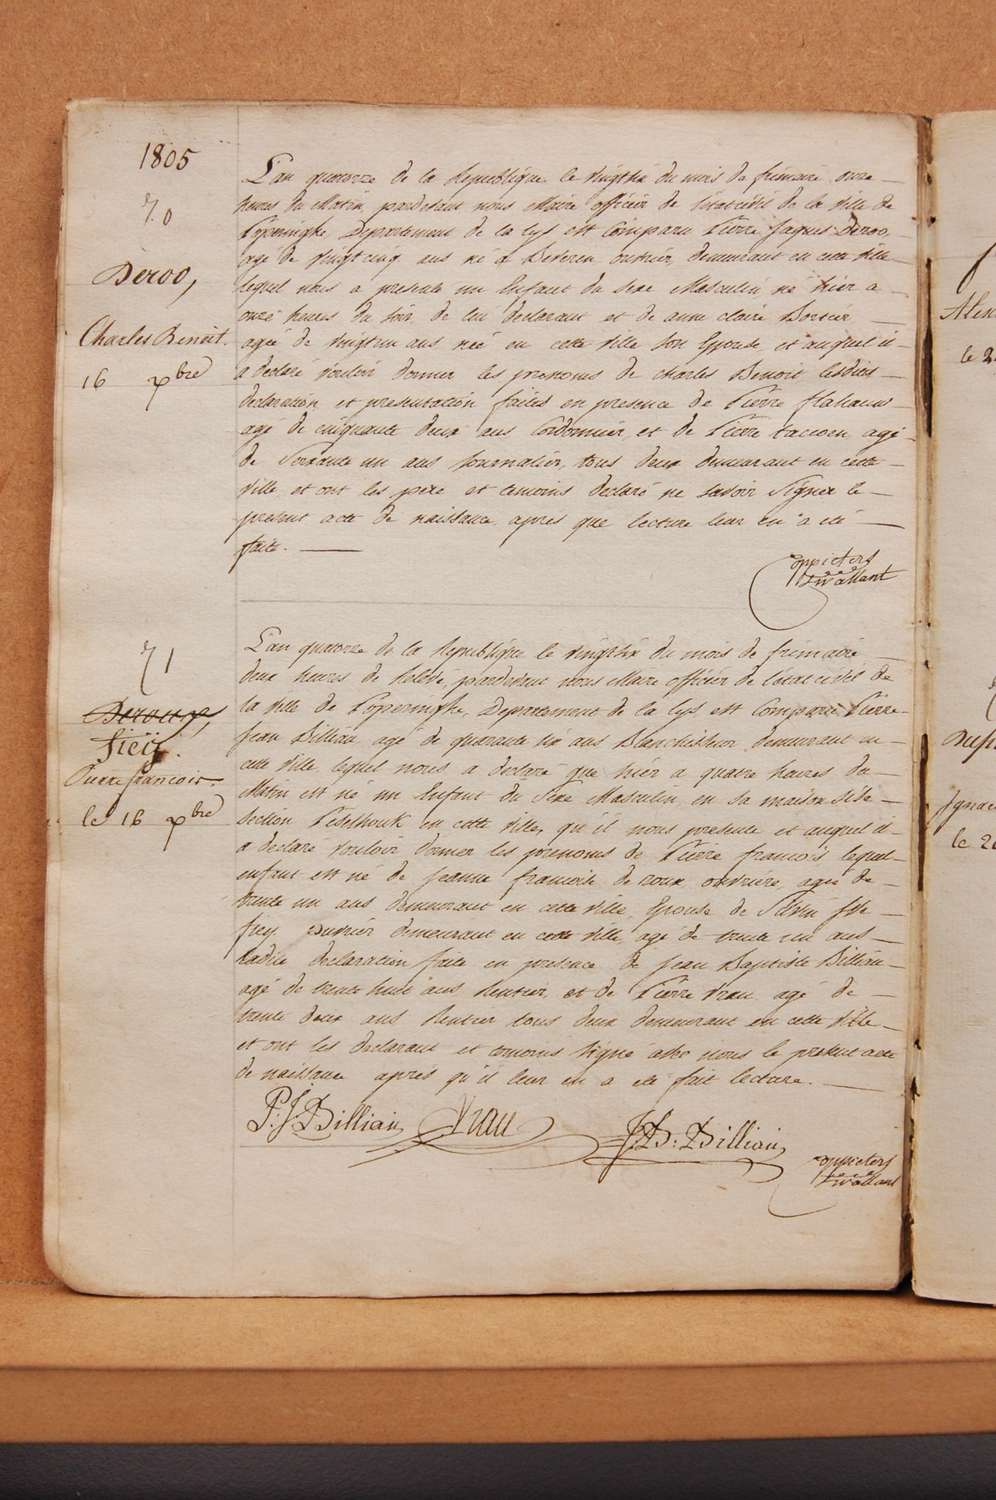 1805
70
Deroo,
Charles Benoit.
16 xbre
L'an quatorze de la Republique le vingtsix du mois de frimaire onze
heures du Matin pardevant nous Maire officier de l'etat civil de la ville de
Poperinghe, Departement de la Lys est Comparu Pierre Jaques Deroo,
agé de vingt cinq ans né a ouvrier, demeurant en cette ville
lequel nous a presenté un Enfant du sexe Masculin né hier a
onze heures du soir, de lui declarant et de anne claire
agée de vingt un ans née en cette ville son Epouse et auquel il
a declaré vouloir donner les prenoms de charles Benoit lesdites
declaration et presentation faites en presence de Pierre flahaeus
agé de cinquante deux ans Cordonnier, et de Pierre agé
de Soixante un ans Journalier, tous deux demeurant en cette
ville et ont les pere et temoins declaré ne savoir Signer le
present acte de naissance, apres que lecture leur en a été
faite.
Coppieters
Stevallant
71
Deroux,
fieÿ.
Pierre francois.
le 16 xbre
L'an quatorze de la Republique le vingtsix du mois de frimaire
deux heures de Relevé, pardevant nous Maire officier de l'etat civil de
la ville de Poperinghe, Departement de la Lys est Comparu Pierre
Jean Billiau agé de quarante six ans Blanchisseur demeurant en
cette ville, lequel nous a declaré que hier a quatre heures du
Matin est né un Enfant du Sexe Masculin, en sa maison sise
section en cette ville, qu'il nous presente et auquel il
a declaré vouloir donner les prenoms de Pierre francois lequel
enfant est né de Jeanne francoise de roux ouvriere, agée de
trente un ans demeurant en cette ville, Epouse de
fiey ouvrier demeurant en cette ville agé de trente un ans
Ladite declaration faite en presence de Jean Baptiste Billiau
agé de trente huit ans Rentier et de Pierre Vrau agé de
trente deux ans Rentier tous deux demeurant en cette ville
et ont les declarant et temoins Signé avec nous le present acte
de naissance apres qu'il leur en a été fait lecture.
P. J. Billiau
Vrau
J. B. Billiau
Coppieters
Stevallant
Alex
le 2
Ignace
le 2